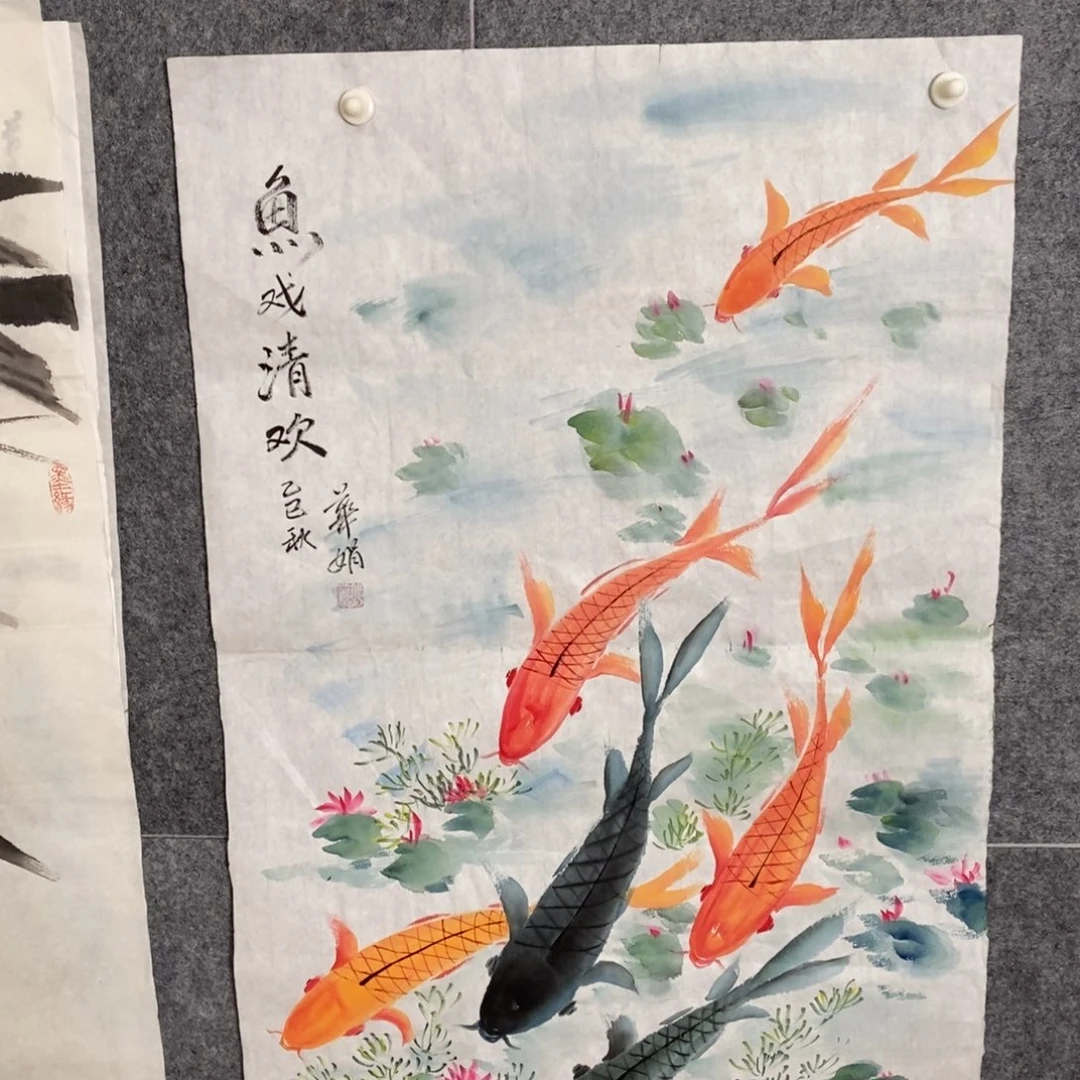 魚戏清欢
乙巳秋
華娟